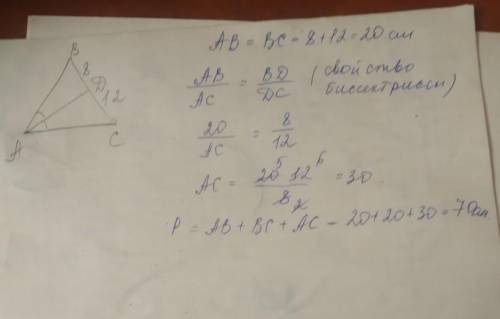 AB = BC = 8+12 = 20 см
B
8
D
12
A
C
AB/AC = BD/DC (свойство
биссектрисы)
20/AC = 8/12
AC = 20⁵ 12⁶ / 8₂ = 30
P = AB + BC + AC – 20+20+30 = 70см